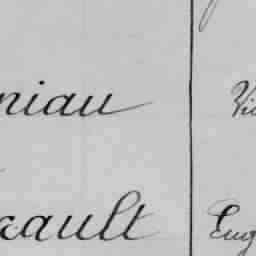 niau Vi
cault Eug